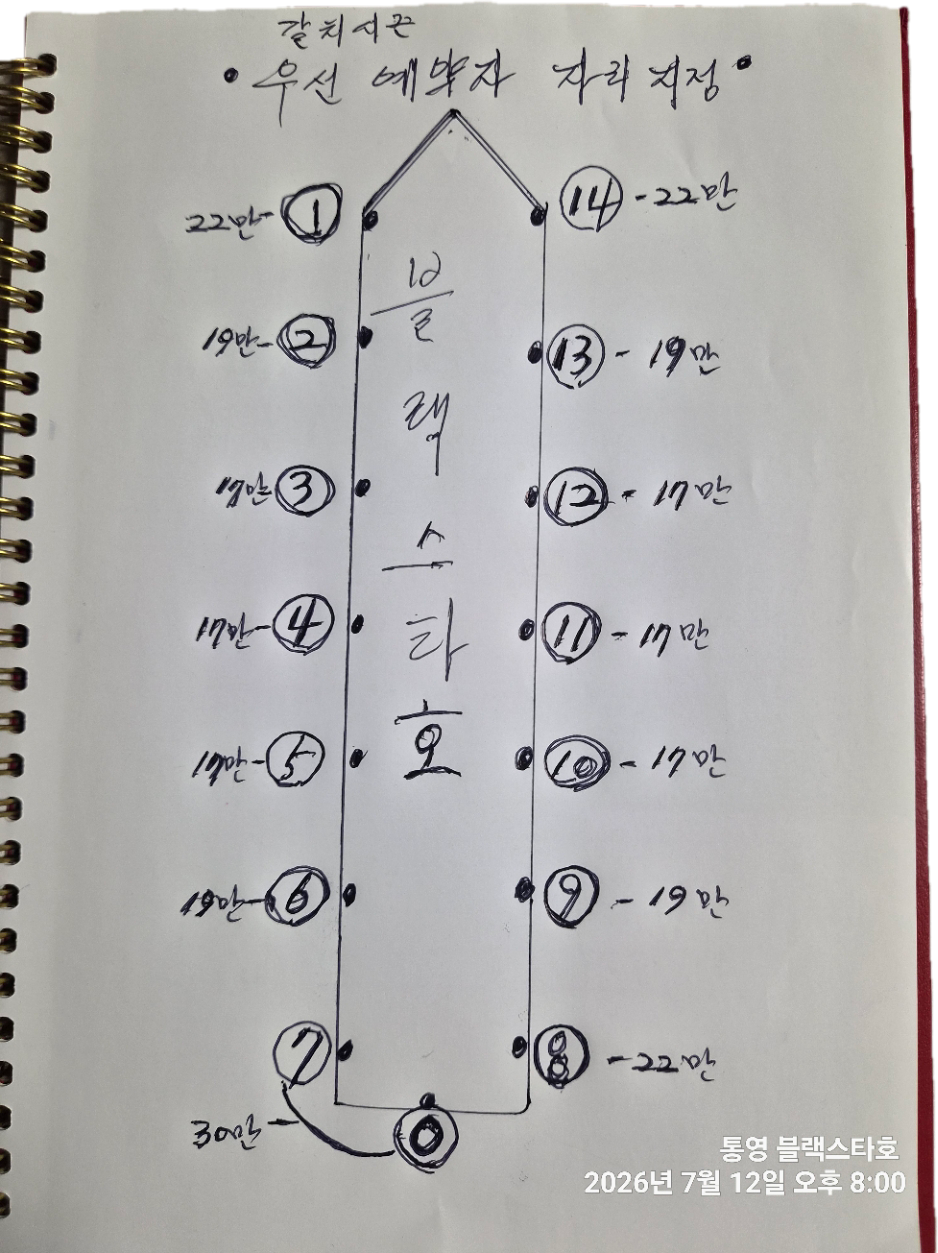 갈치시즌
• 우선 예약자 자리 지정 •
22만- ① ⑭ -22만
19만- ② ⑬ - 19만
17만- ③ ⑫ - 17만
17만- ④ ⑪ - 17만
17만- ⑤ ⑩ - 17만
19만- ⑥ ⑨ - 19만
⑦ ⑧ -22만
30만- ⓪
블랙스타호
통영 블랙스타호
2026년 7월 12일 오후 8:00